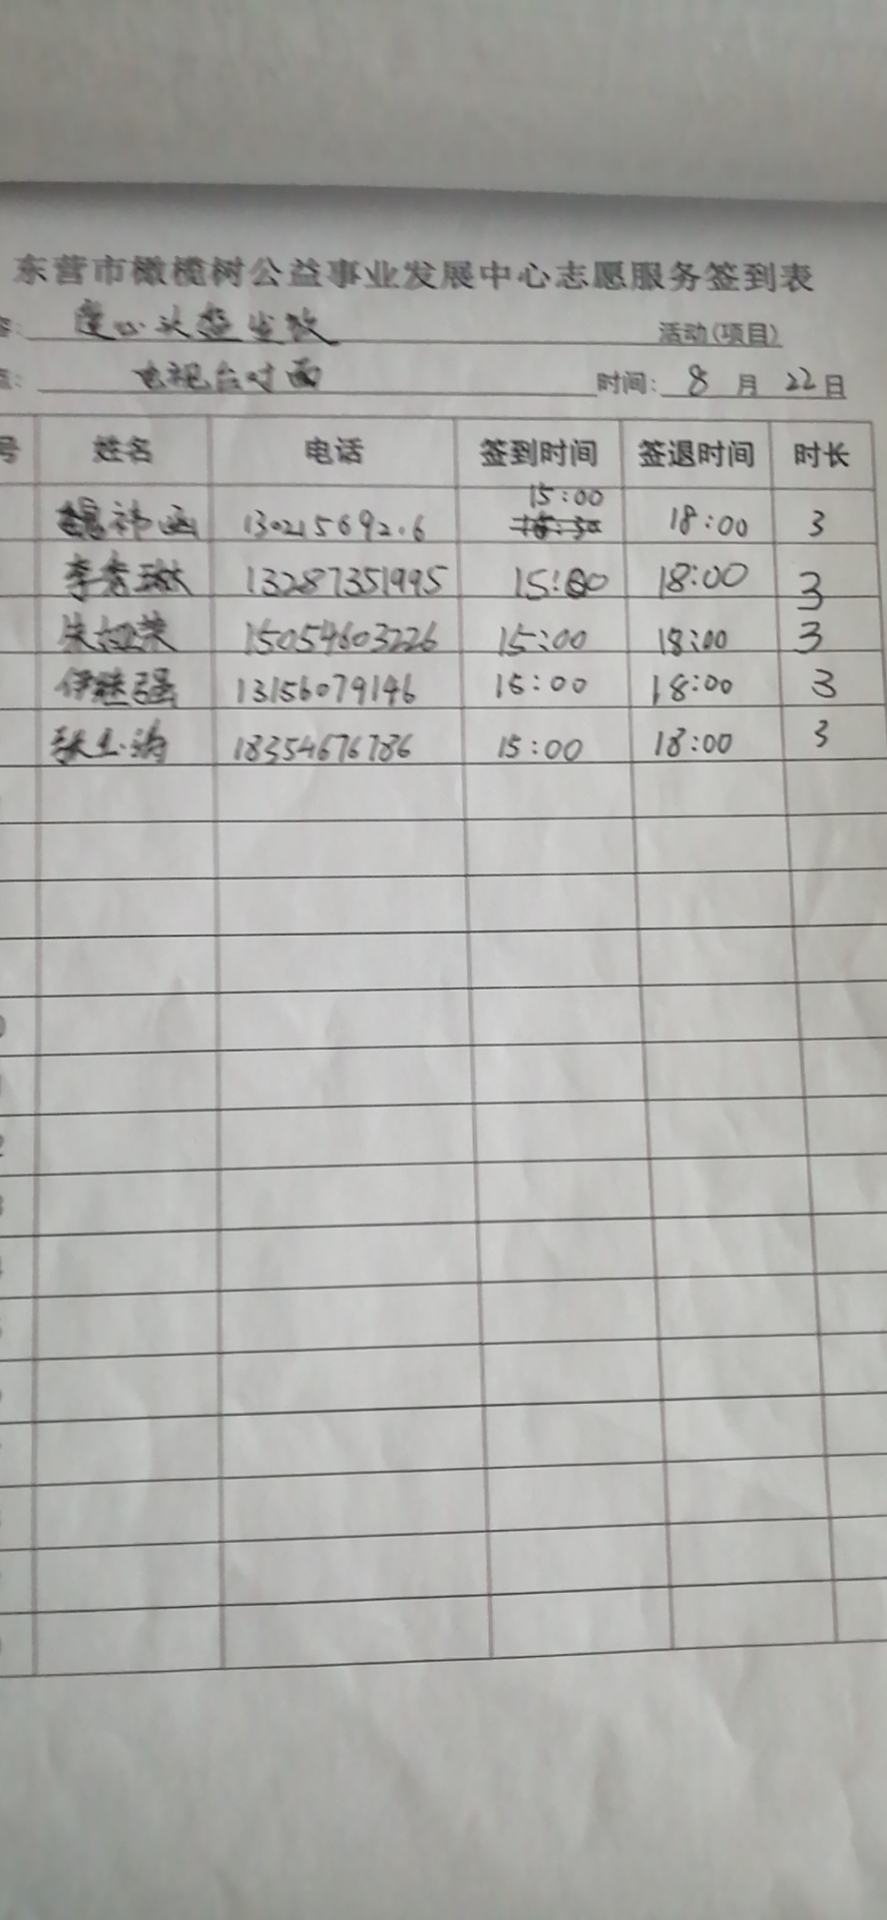 东营市橄榄树公益事业发展中心志愿服务签到表
活动(项目)
电视台对面 时间: 8 月 22 日
号 姓名 电话 签到时间 签退时间 时长
15:00
祎函 130215692.6 18:00 3
李秀琳 13287351995 15:00 18:00 3
朱 荣 15054603226 15:00 18:00 3
伊继强 13156079146 15:00 18:00 3
张玉 18354676786 15:00 18:00 3